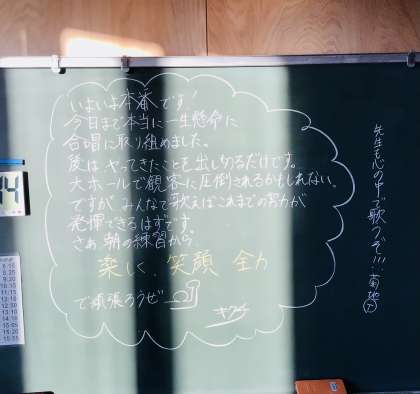 いよいよ本番です!
今日まで本当に一生懸命に
合唱に取り組めました。
後は、やってきたことを出しきるだけです。
大ホールで観客に圧倒されるかもしれない。
ですが みんなで歌えばこれまでの努力が
発揮できるはずです。
さぁ 朝の練習から
楽しく 笑顔 全力
で頑張ろうぜ
先生も心の中で歌うぞ!!! 菊地
14